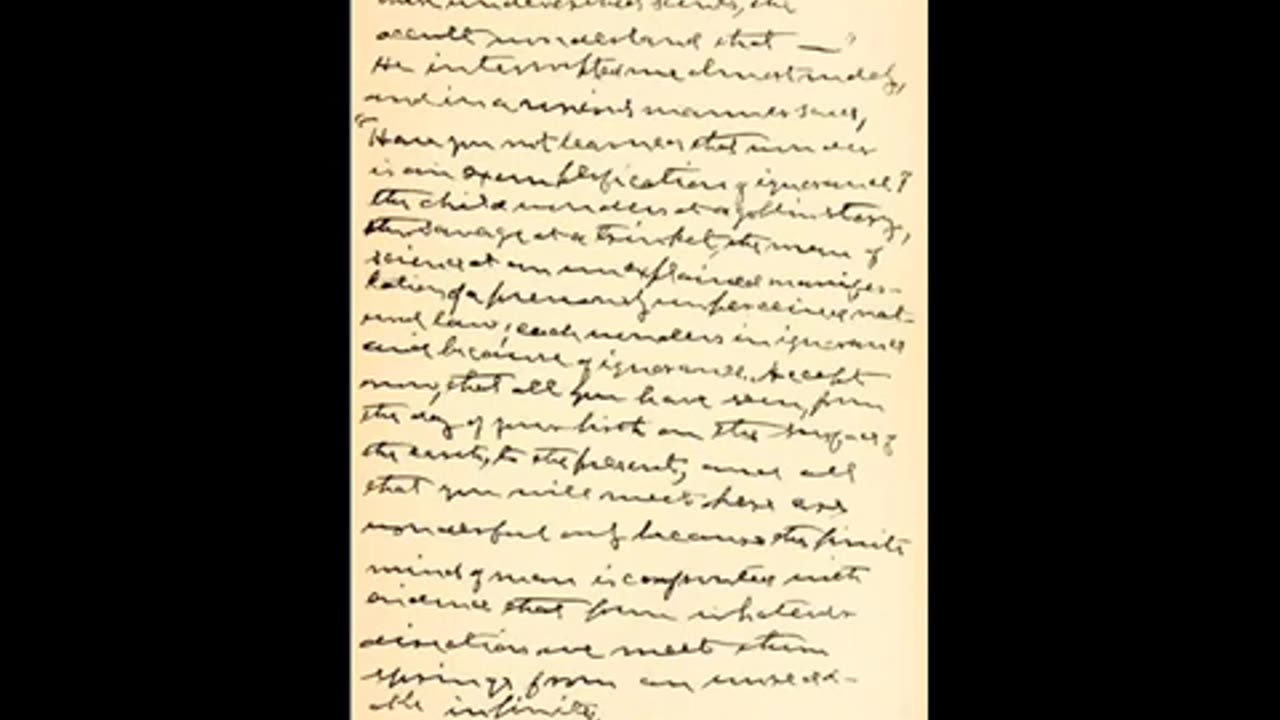 the
occult wonderland that —"
He interrupted me almost rudely,
and in a serious manner said,
"Have you not learned that wonder
is an exemplification of ignorance?
the child wonders at a goblin story,
the savage at a trinket, the man of
science at an unexplained manifes-
tation of a previously unperceived nat-
ural law; each wonders in ignorance
and because of ignorance. Accept
now, that all you have seen, from
the day of your birth on the surface of
the earth, to the present, and all
that you will meet here are
wonderful only because the finite
mind of man is confronted with
evidence that from whatever
direction we meet them
springs from an unreach-
able infinity.